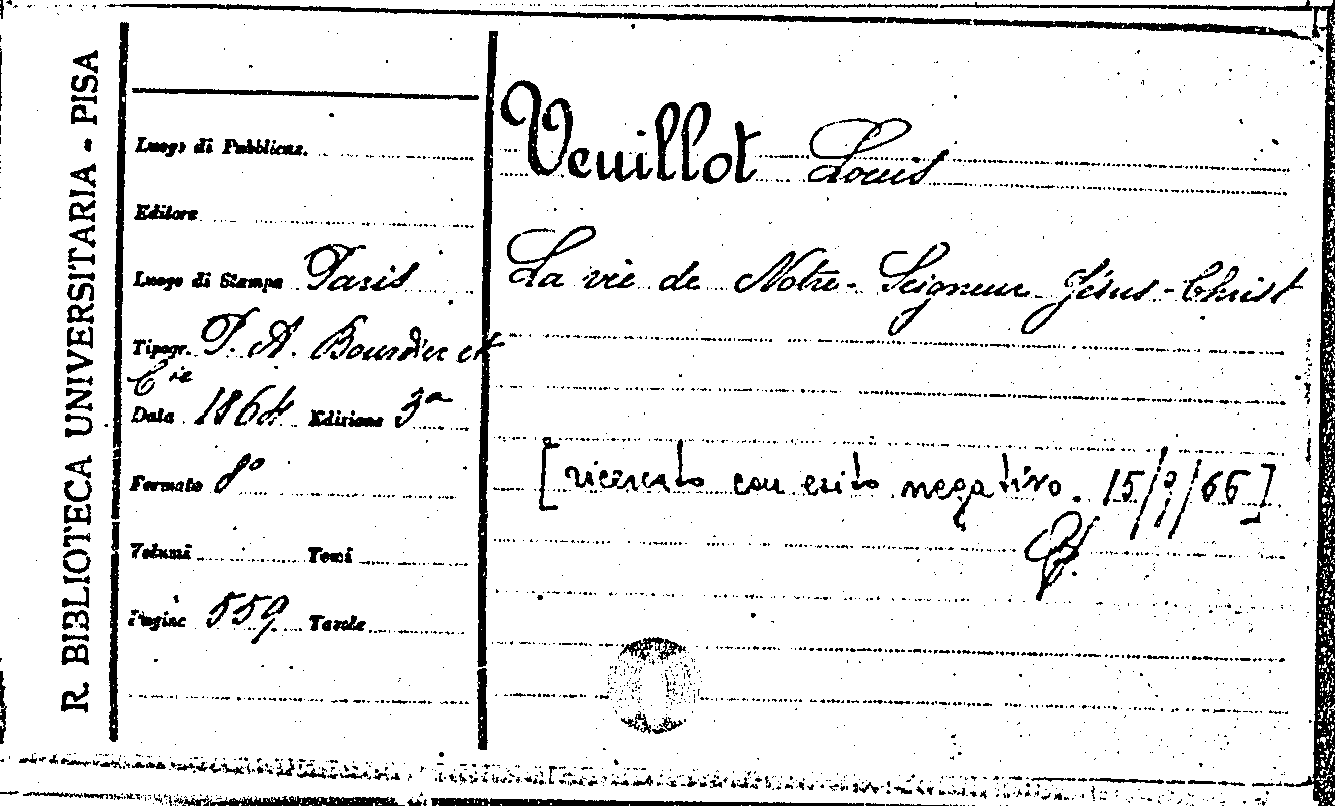 R. BIBLIOTECA UNIVERSITARIA - PISA
Luogo di Pubblicaz.
Editore
Luogo di Stampa Paris
Tipogr. P. A. Bourdier et
Cie
Data 1864 Edizione 3a
Formato 8°
Volumi Tomi
Pagine 559 Tavole
Veuillot Louis
La vie de Notre-Seigneur Jésus-Christ
[ricercato con esito negativo. 15/9/66]